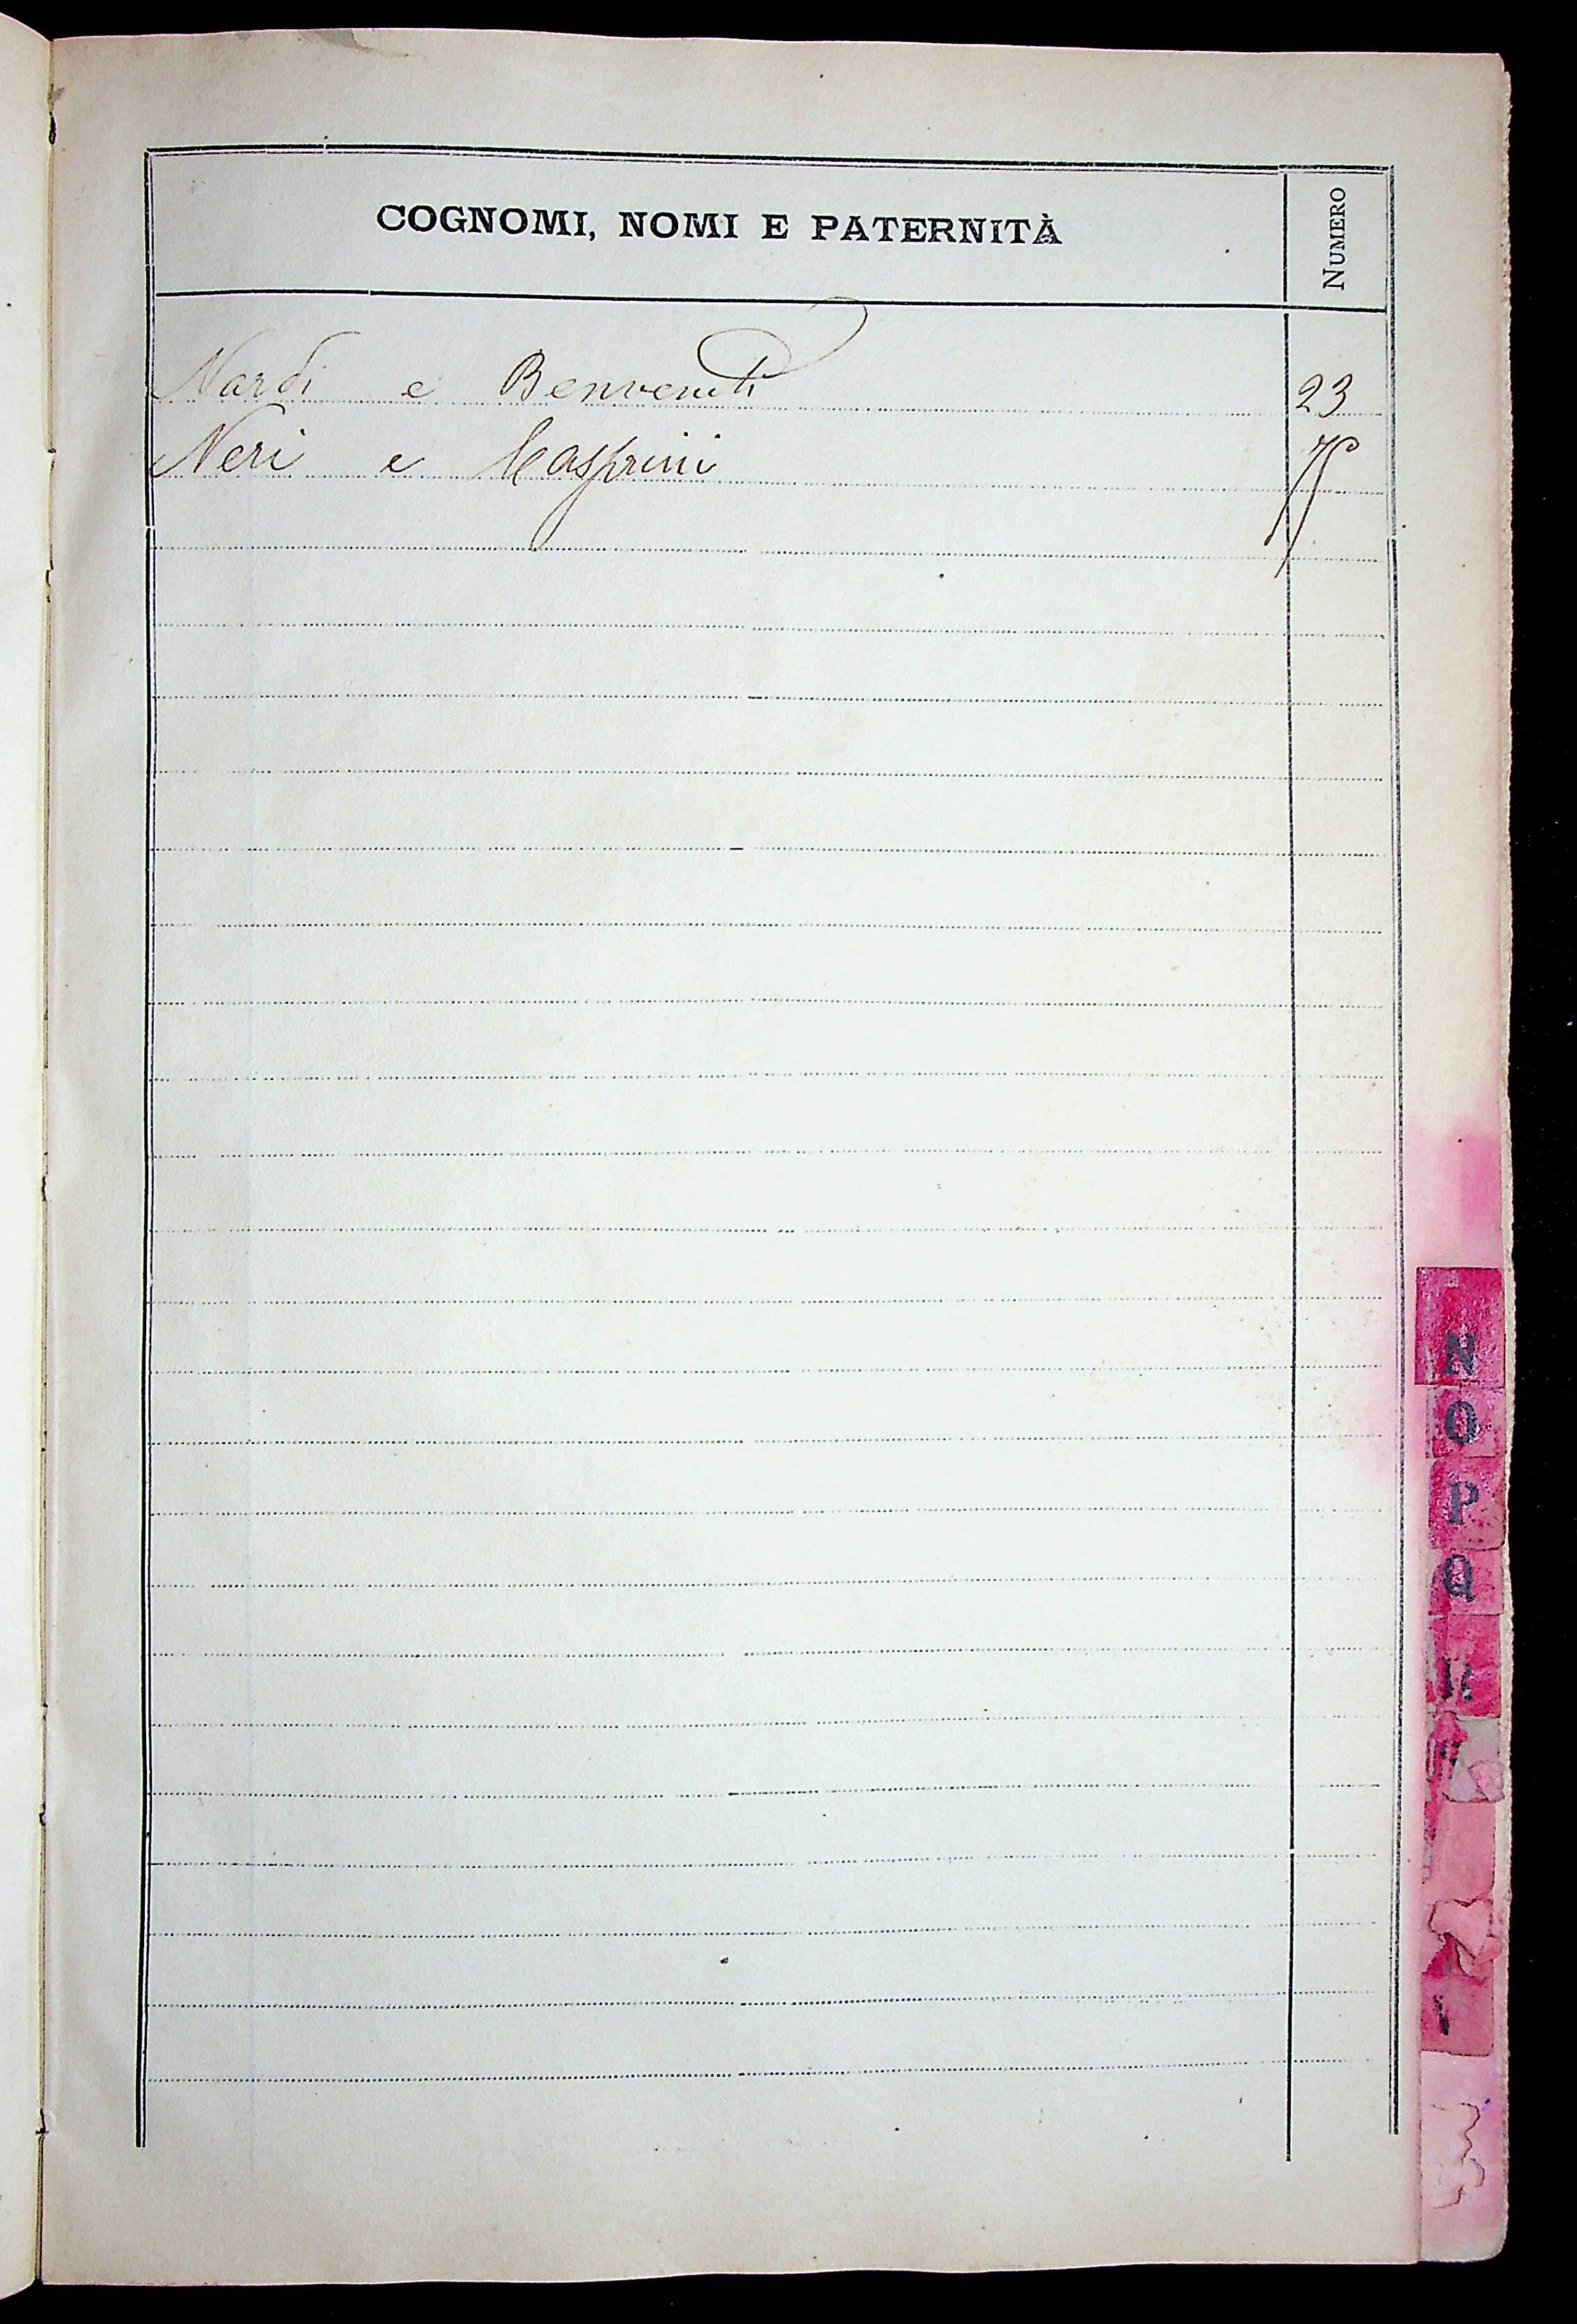 COGNOMI, NOMI E PATERNITÀ
NUMERO
Nardi e Benvenuti 23
Neri e Casprini
N
O
P
Q
R
V